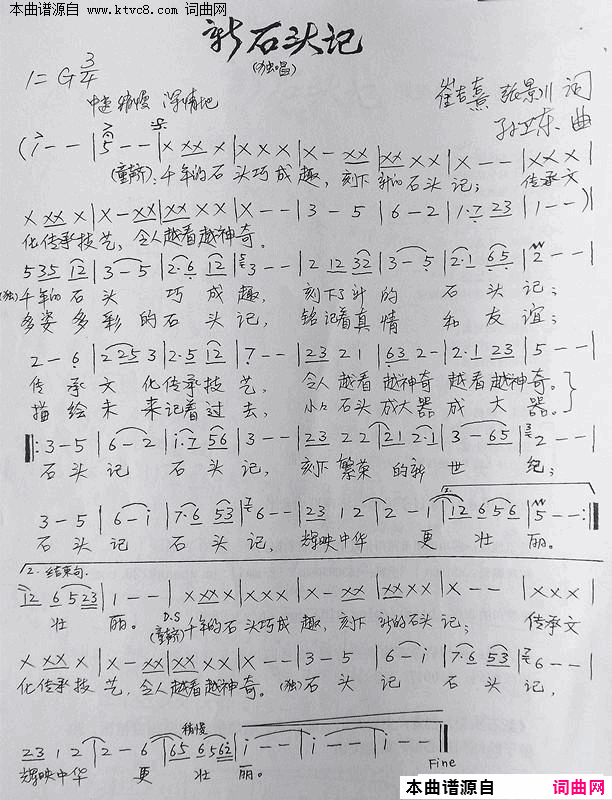 本曲谱源自 www.ktvc8.com 词曲网
新石头记
(独唱)
1=G 3/4
中速稍慢 深情地
崔吉熹 张景川 词
孙卫东 曲
(i - - | 5 - - | x xx x | x x x | x - xx | xx x x | x - - | x x x |
(童声):千年的石头巧成趣,刻下新的石头记; 传承文
x xx x | x - xx | xx x x | x - - | 3 - 5 | 6 - 2 | 1·7 23 | 1 - - ) |
化传承技艺,令人越看越神奇。
535 12 | 3 - 5 | 2·6 12 | 3 - - | 2 12 32 | 3 - 5 | 2·1 65 | 2 - - |
(独)千年的石头 巧成趣, 刻下的 石头记;
多姿多彩的石头记, 铭记着真情和友谊;
2 - 6 | 225 3 | 2·5 12 | 7 - - | 23 2 1 | 63 2 - | 2·1 23 | 5 - - |
传承文化传承技艺, 令人越看越神奇越看越神奇。
描绘未来记着过去, 小小石头成大器成大器。
‖: 3 - 5 | 6 - 2 | i·7 56 | 3 - - | 23 2 2 | 21 2·1 | 3 - 65 | 2 - - |
石头记石头记, 刻下繁荣的新世纪;
3 - 5 | 6 - i | 7·6 53 | 6 - - | 23 1 2 | 2 - 1 | 12 656 | 5 - - :‖
石头记石头记, 辉映中华更壮丽。
2. 结束句.
12 6 523 | 1 - - | x xx x | x x x | x - xx | xx x x | x - - | x x x |
壮丽。 D.S (童声)千年的石头巧成趣,刻下新的石头记; 传承文
x xx x | x - xx | xx x x | x - - | 3 - 5 | 6 - i | 7·6 53 | 6 - - |
化传承技艺,令人越看越神奇。(独)石头记石头记,
稍慢
23 1 2 | 2 - 6 | 65 656i | i - - | i - - | i - - ‖
辉映中华更壮丽。
Fine
本曲谱源自 词曲网